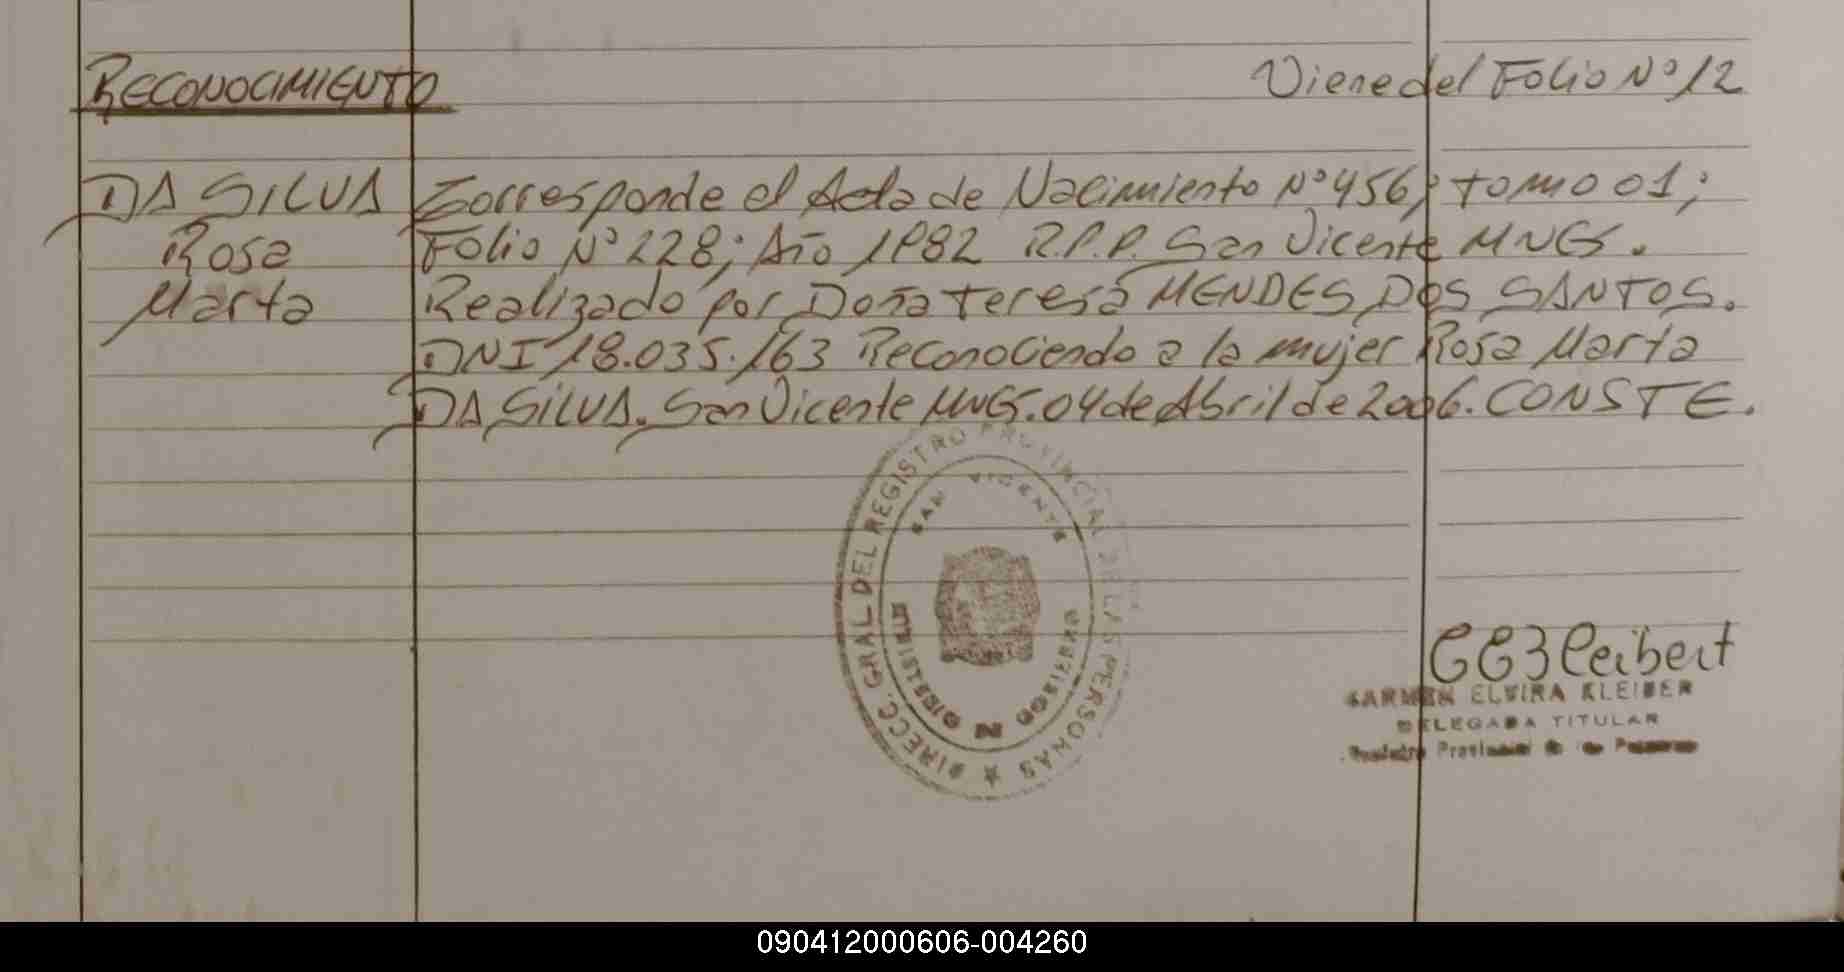 RECONOCIMIENTO
Viene del Folio Nº 12
DA SILVA
Rosa
Marta
Corresponde el Acta de Nacimiento Nº 456; TOMO 01;
Folio Nº 228; Año 1982 R.P.P. San Vicente MNES.
Realizado por Doña Teresa MENDES DOS SANTOS.
DNI 18.035.163 Reconociendo a la mujer Rosa Marta
DA SILVA. San Vicente MNES. 04 de Abril de 2006. CONSTE.
DIRECC. GRAL. DEL REGISTRO PROVINCIAL DE LAS PERSONAS
SAN VICENTE
MISIONES
CARMEN ELVIRA KLEIBER
DELEGADA TITULAR
Registro Provincial de las Personas
090412000606-004260